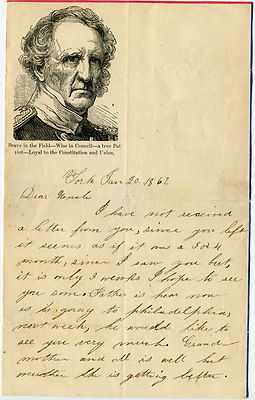 Brave in the Field—Wise in Council—a true Pat
riot—Loyal to the Constitution and Union.
York Jan 20. 1862
Dear
I have not received
a letter from you, since you left
it seemes as if it was a 3 or 4
month, since I saw you but
it is only 3 weeks I hope to see
you som. Father is hear now
is going to philadelphia,
next week, he would like to
see you very much. Grand-
mother and all is well but
mother she is getting better.